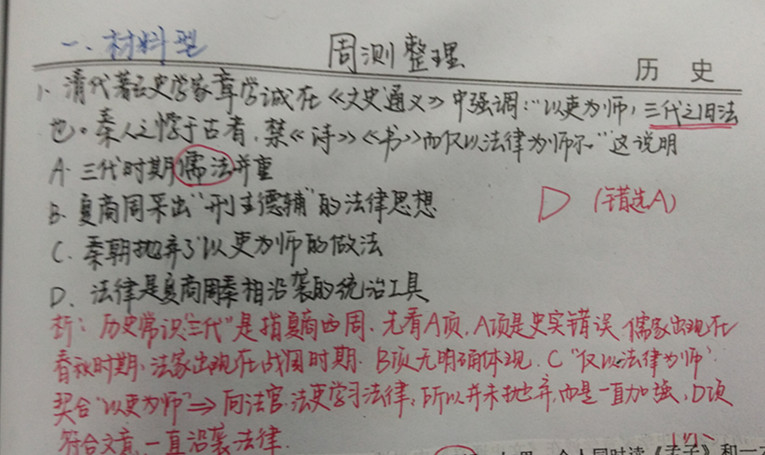 一、材料型 周测整理 历史
1、清代著名史学家章学诚在《文史通义》中强调："以吏为师,三代之旧法
也。秦人之悖于古者,禁《诗》《书》而仅以法律为师尔"这说明
A. 三代时期儒法并重
B. 夏商周采出"刑主德辅"的法律思想
D (错选A)
C. 秦朝抛弃了以吏为师的做法
D、法律是夏商周秦相沿袭的统治工具
析：历史常识"三代"是指夏商西周.先看A项.A项是史实错误 儒家出现在
春秋时期,法家出现在战国时期. B项无明确体现. C"仅以法律为师"
契合"以吏为师"⇒向法官.法吏学习法律,所以并未抛弃,而是一直加强,D项
符合文意,一直沿袭法律.